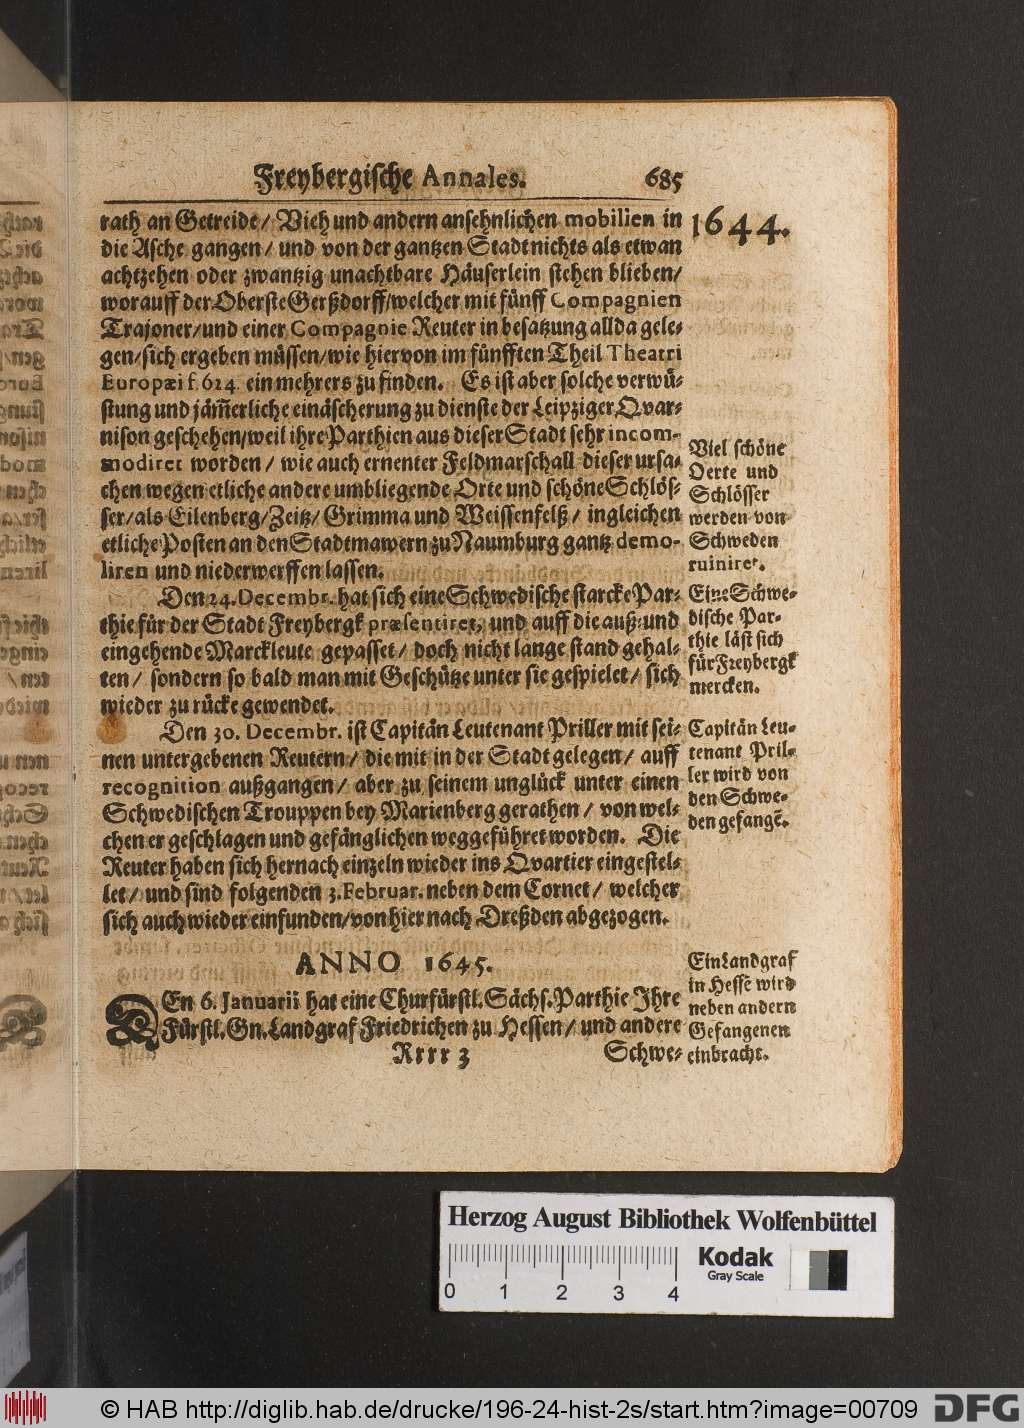 Freybergische Annales. 685
1644.
rath an Getreide/ Vieh und andern ansehnlichen mobilien in
die Asche gangen/ und von der gantzen Stadt nichts als etwan
achtzehen oder zwantzig unachtbare Häuserlein stehen blieben/
worauff der Oberste Gerßdorff/welcher mit fünff Compagnien
Trajoner/und einer Compagnie Reuter in besatzung allda gele-
gen/sich ergeben müssen/wie hiervon im fünfften Theil Theatri
Europæi f. 624. ein mehrers zu finden. Es ist aber solche verwü-
stung und jam̃erliche einäscherung zu dienste der Leipziger Qvar-
nison geschehen/weil ihre Parthien aus dieser Stadt sehr incom-
modiret worden/ wie auch ernenter Feldmarschall dieser ursa-
chen wegen etliche andere umbliegende Orte und schöne Schlös-
ser/als Eilenberg/Zeitz/ Grimma und Weissenfelß/ ingleichen
etliche Posten an den Stadtmawern zu Naumburg gantz demo-
liren und niederwerffen lassen.
Viel schöne
Oerte und
Schlösser
werden von
Schweden
ruiniret.
Den 24. Decembr. hat sich eine Schwedische starcke Par-
thie für der Stadt Freybergk præsentiret, und auff die auß- und
eingehende Marckleute gepasset/ doch nicht lange stand gehal-
ten/ sondern so bald man mit Geschütze unter sie gespielet/ sich
wieder zu rücke gewendet.
Eine Schwe-
dische Par-
thie läst sich
für Freybergk
mercken.
Den 30. Decembr. ist Capitän Leutenant Priller mit sei-
nen untergebenen Reutern/ die mit in der Stadt gelegen/ auff
recognition außgangen/ aber zu seinem unglück unter einen
Schwedischen Trouppen bey Marienberg gerathen/ von wel-
chen er geschlagen und gefänglichen weggeführet worden. Die
Reuter haben sich hernach einzeln wieder ins Qvartier eingestel-
let/ und sind folgenden 3. Februar. neben dem Cornet/ welcher
sich auch wieder einfunden/von hier nach Dreßden abgezogen.
Capitän Leu-
tenant Pril-
ler wird von
den Schwe-
den gefangē.
ANNO 1645.
DEn 6. Januarii hat eine Churfürstl. Sächs. Parthie Ihre
Fürstl. Gn. Landgraf Friedrichen zu Hessen/ und andere
Rrrr 3 Schwe-
Ein Landgraf
in Hesse wird
neben andern
Gefangenen
einbracht.
Herzog August Bibliothek Wolfenbüttel
Kodak
Gray Scale
0 1 2 3 4
© HAB http://diglib.hab.de/drucke/196-24-hist-2s/start.htm?image=00709
DFG